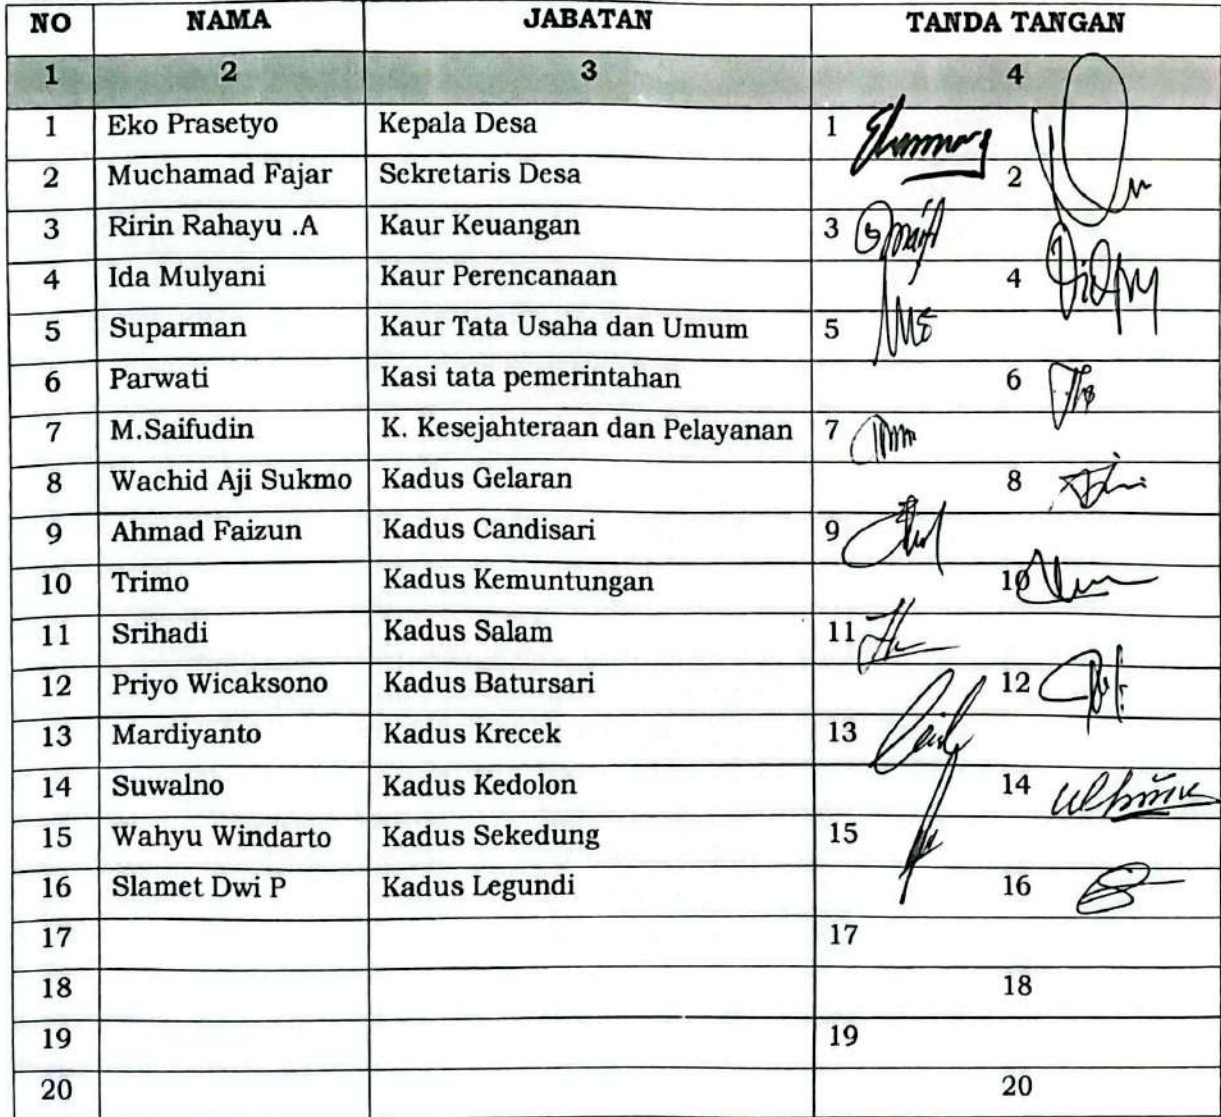 NO NAMA JABATAN TANDA TANGAN
1 2 3 4
1 Eko Prasetyo Kepala Desa 1
2 Muchamad Fajar Sekretaris Desa 2
3 Ririn Rahayu .A Kaur Keuangan 3
4 Ida Mulyani Kaur Perencanaan 4
5 Suparman Kaur Tata Usaha dan Umum 5
6 Parwati Kasi tata pemerintahan 6
7 M.Saifudin K. Kesejahteraan dan Pelayanan 7
8 Wachid Aji Sukmo Kadus Gelaran 8
9 Ahmad Faizun Kadus Candisari 9
10 Trimo Kadus Kemuntungan 10
11 Srihadi Kadus Salam 11
12 Priyo Wicaksono Kadus Batursari 12
13 Mardiyanto Kadus Krecek 13
14 Suwalno Kadus Kedolon 14
15 Wahyu Windarto Kadus Sekedung 15
16 Slamet Dwi P Kadus Legundi 16
17 17
18 18
19 19
20 20